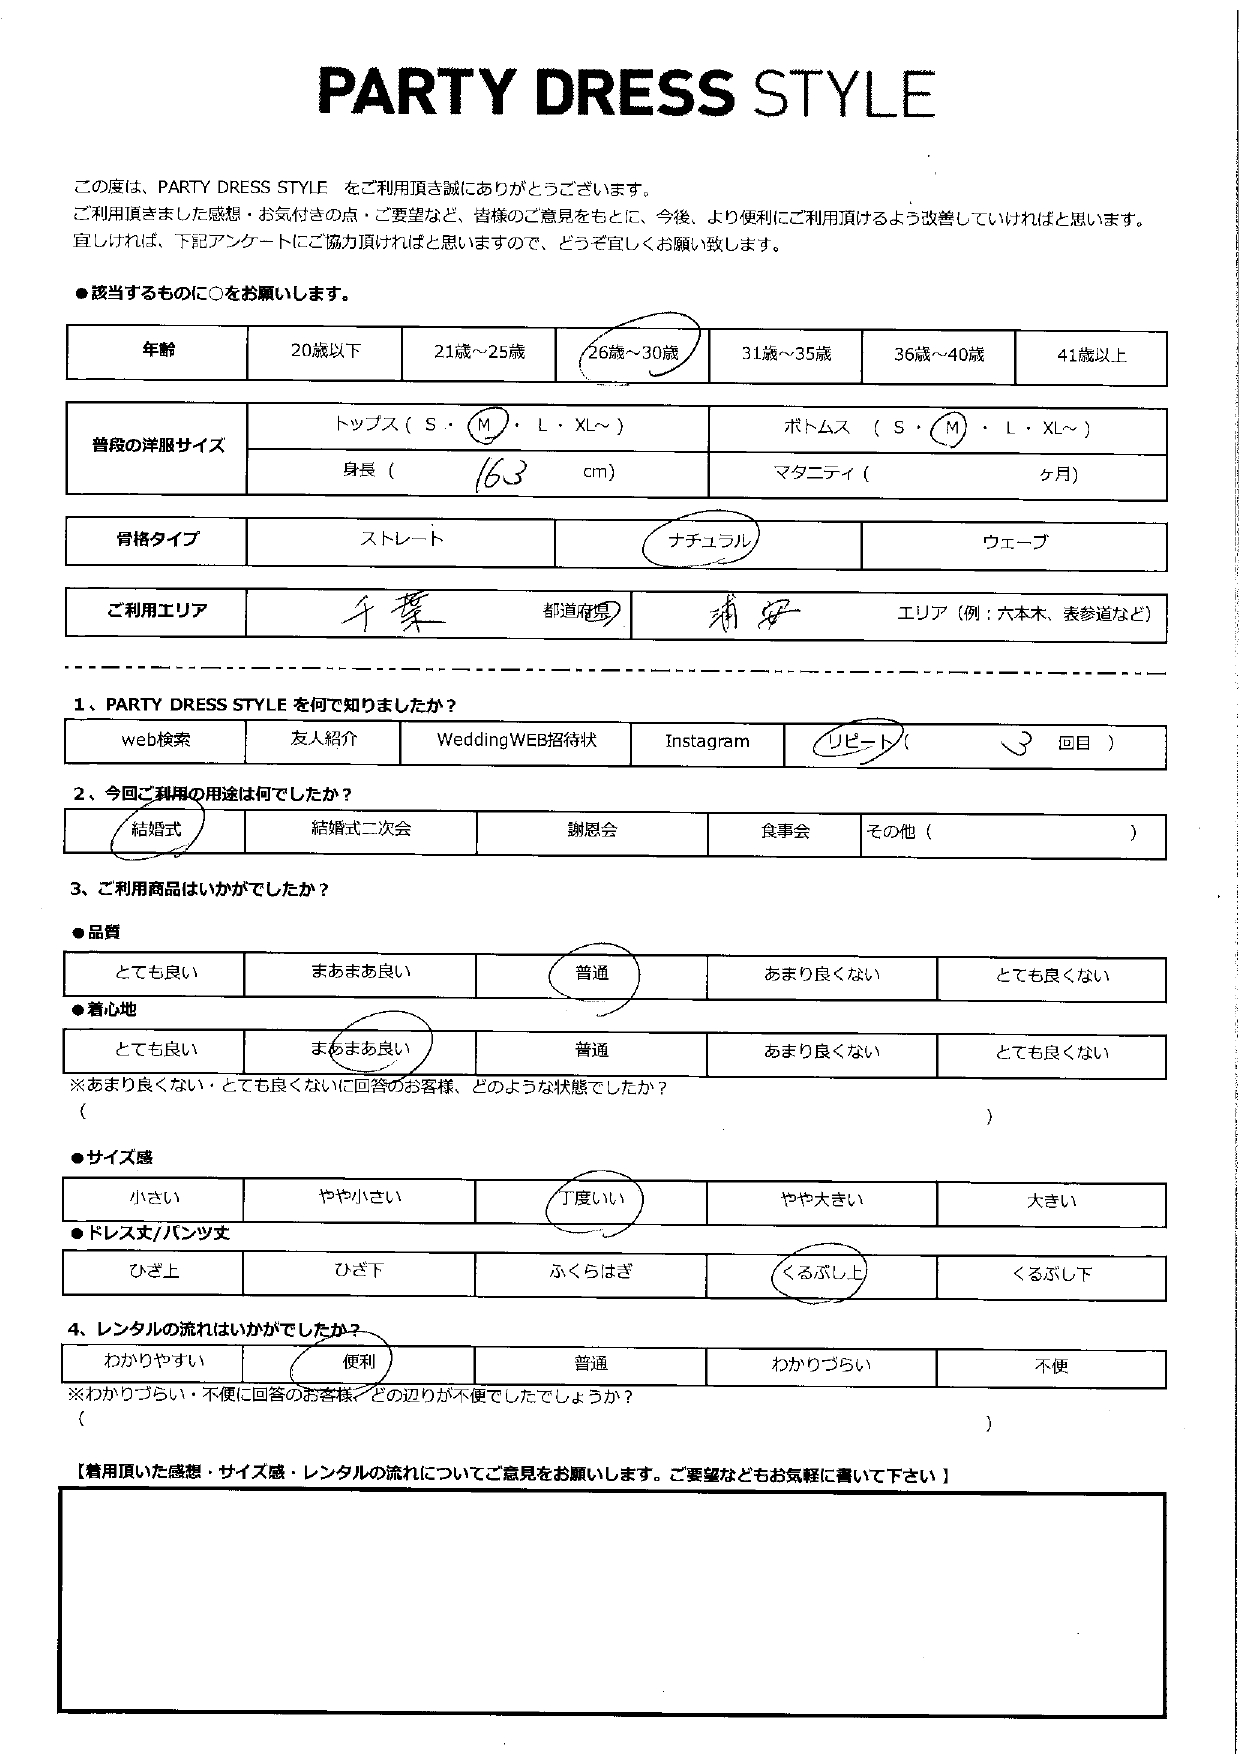 PARTY DRESS STYLE
この度は、PARTY DRESS STYLE をご利用頂き誠にありがとうございます。
ご利用頂きました感想・お気付きの点・ご要望など、皆様のご意見をもとに、今後、より便利にご利用頂けるよう改善していければと思います。
宜しければ、下記アンケートにご協力頂ければと思いますので、どうぞ宜しくお願い致します。
●該当するものに○をお願いします。
年齢 20歳以下 21歳～25歳 26歳～30歳 31歳～35歳 36歳～40歳 41歳以上
普段の洋服サイズ
トップス ( S ・ M ・ L ・ XL～ ) ボトムス ( S ・ M ・ L ・ XL～ )
身長 ( 163 cm) マタニティ ( ヶ月)
骨格タイプ ストレート ナチュラル ウェーブ
ご利用エリア 千葉 都道府県 浦安 エリア（例：六本木、表参道など）
1、PARTY DRESS STYLE を何で知りましたか？
web検索 友人紹介 WeddingWEB招待状 Instagram リピート ( 3 回目 )
2、今回ご利用の用途は何でしたか？
結婚式 結婚式二次会 謝恩会 食事会 その他 ( )
3、ご利用商品はいかがでしたか？
●品質
とても良い まあまあ良い 普通 あまり良くない とても良くない
●着心地
とても良い まあまあ良い 普通 あまり良くない とても良くない
※あまり良くない・とても良くないに回答のお客様、どのような状態でしたか？
( )
●サイズ感
小さい やや小さい 丁度いい やや大きい 大きい
●ドレス丈/パンツ丈
ひざ上 ひざ下 ふくらはぎ くるぶし上 くるぶし下
4、レンタルの流れはいかがでしたか？
わかりやすい 便利 普通 わかりづらい 不便
※わかりづらい・不便に回答のお客様、どの辺りが不便でしたでしょうか？
( )
【着用頂いた感想・サイズ感・レンタルの流れについてご意見をお願いします。ご要望などもお気軽に書いて下さい】